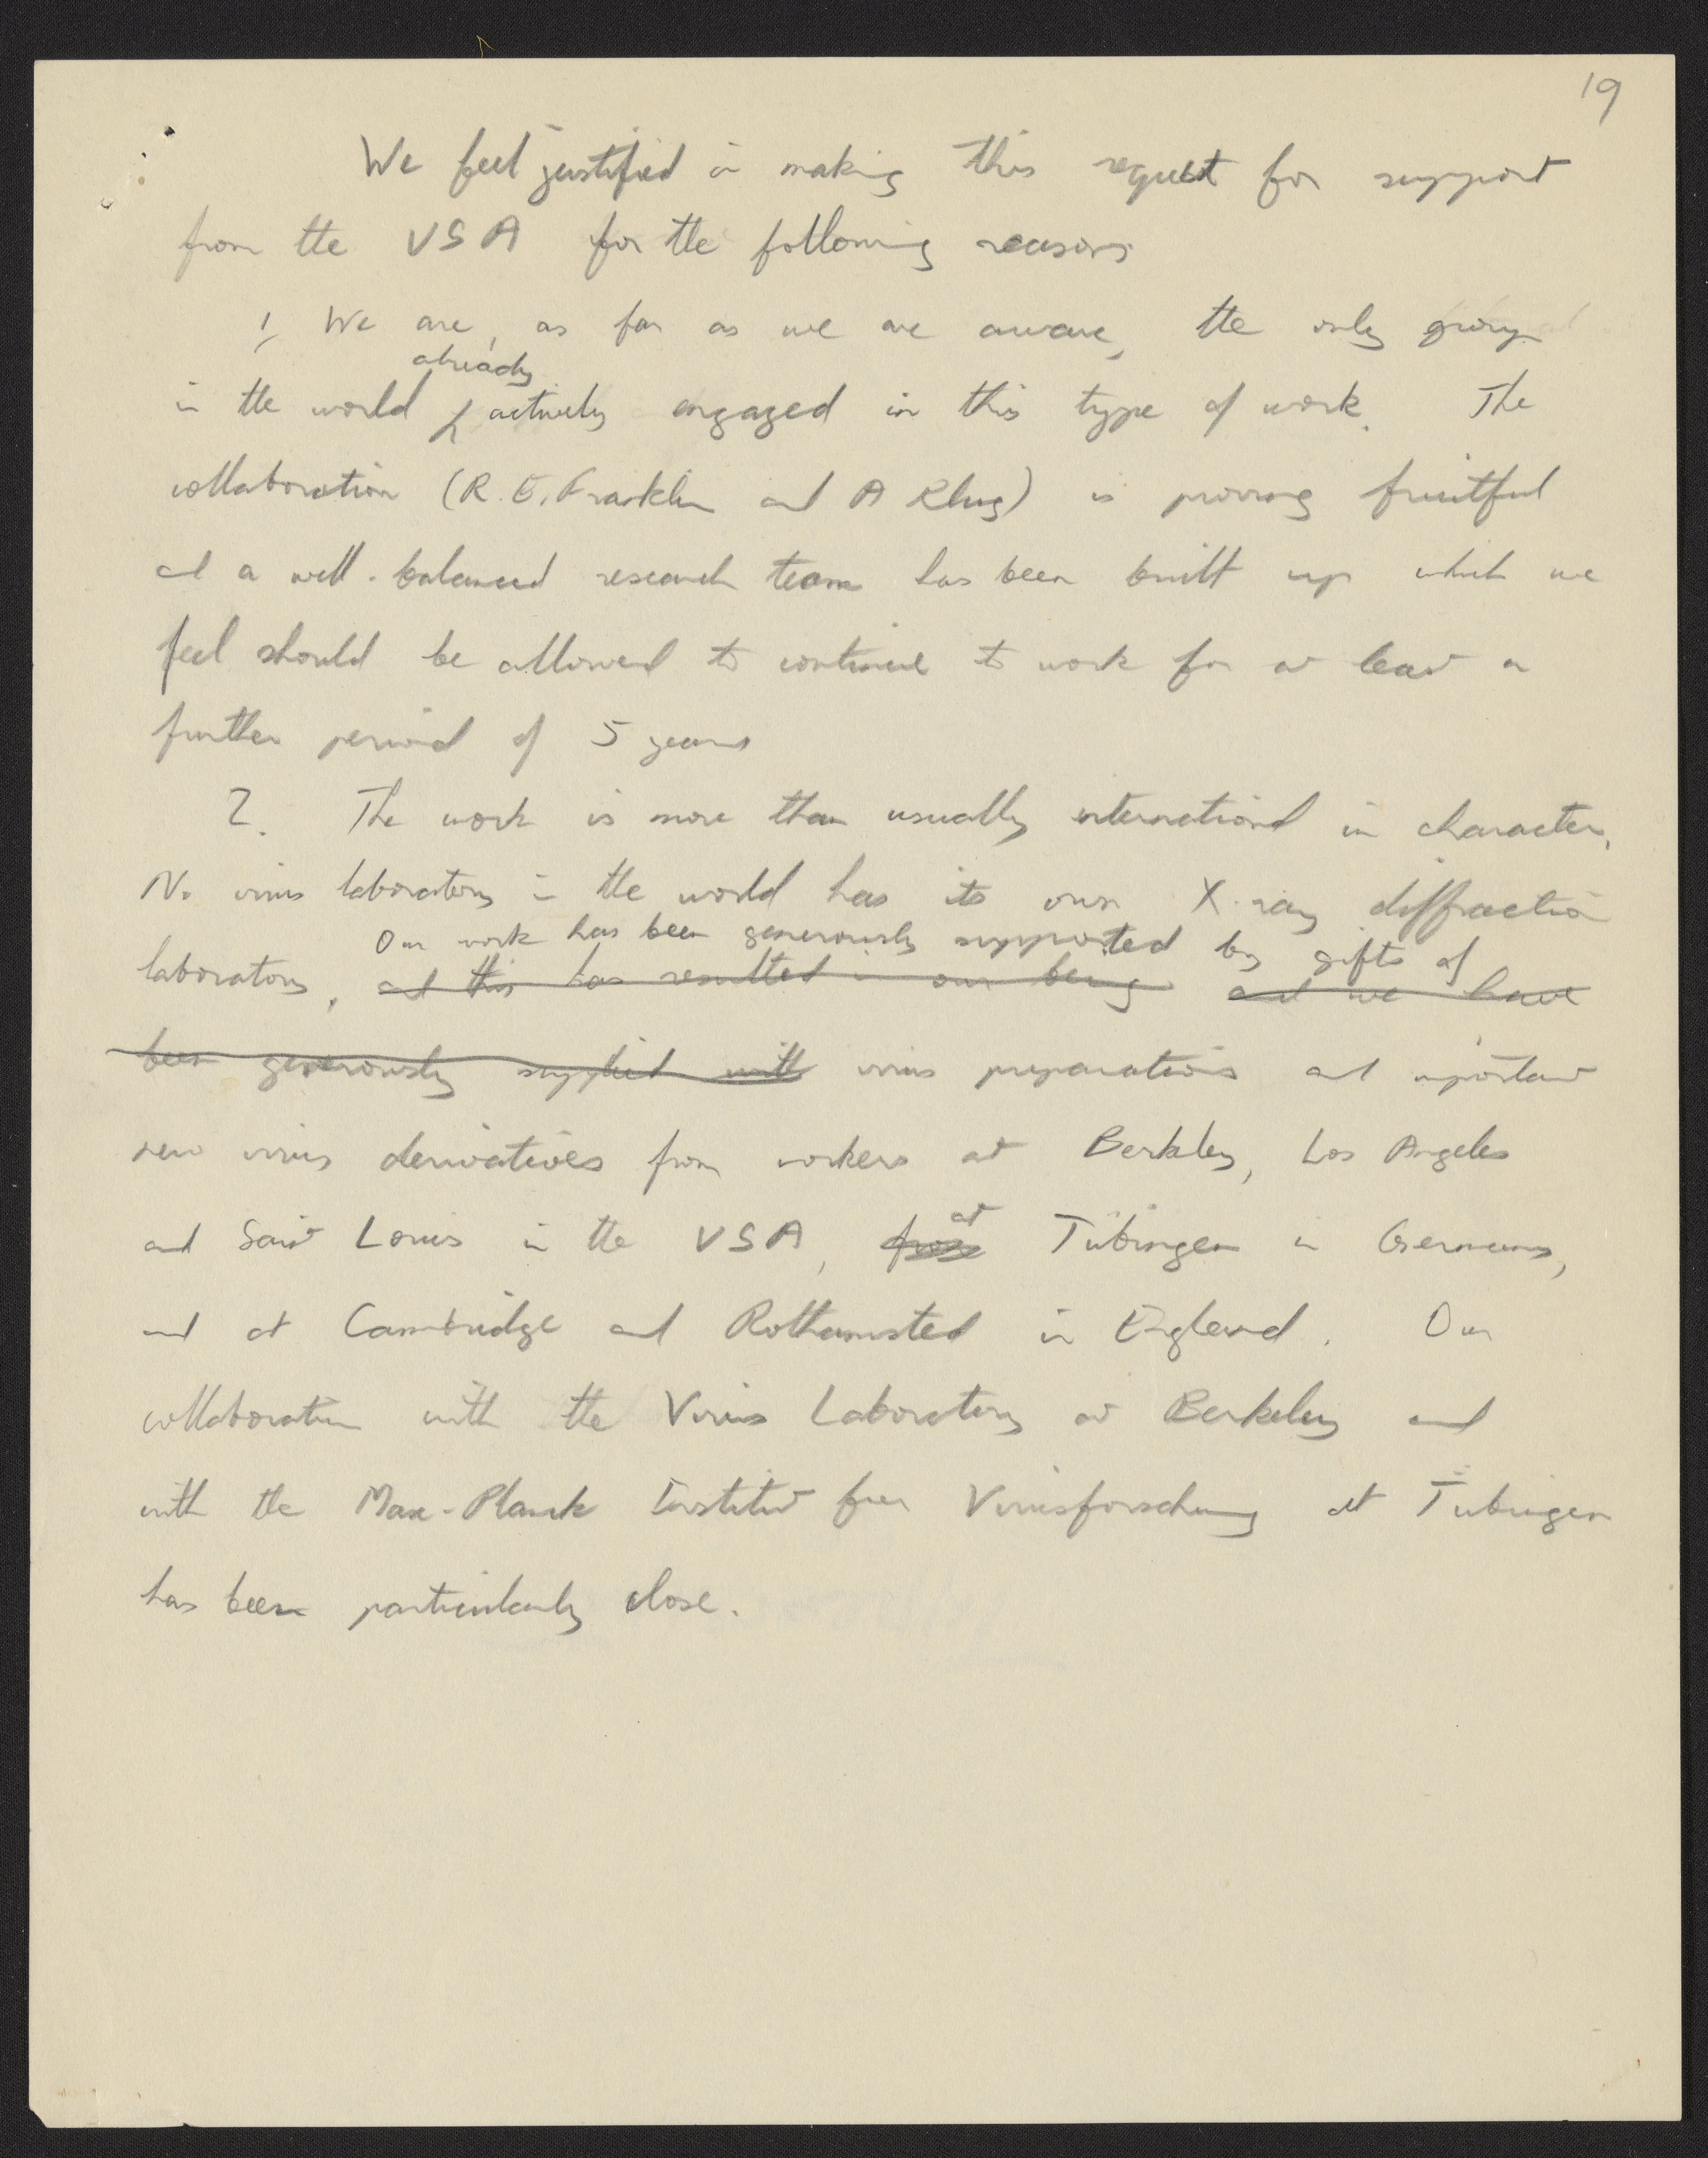 19
We feel justified in making this request for support
from the USA for the following reasons
1, We are, as far as we are aware, the only group
already
in the world actively engaged in this type of work. The
collaboration (R.E. Franklin and A Klug) is proving fruitful
and a well-balanced research team has been built up which we
feel should be allowed to continue to work for at least a
further period of 5 years
2. The work is more than usually international in character,
No virus laboratory in the world has its own X-ray diffraction
Our work has been generously supported by gifts of
laboratory, and this has resulted in our being and we have
been generously supplied with virus preparations and important
new virus derivatives from workers at Berkley, Los Angeles
at
and Saint Louis in the USA, from Tübingen in Germany,
and at Cambridge and Rothamsted in England. Our
collaboration with the Virus Laboratory at Berkeley and
with the Max-Planck Institut fuer Virusforschung at Tübingen
has been particularly close.